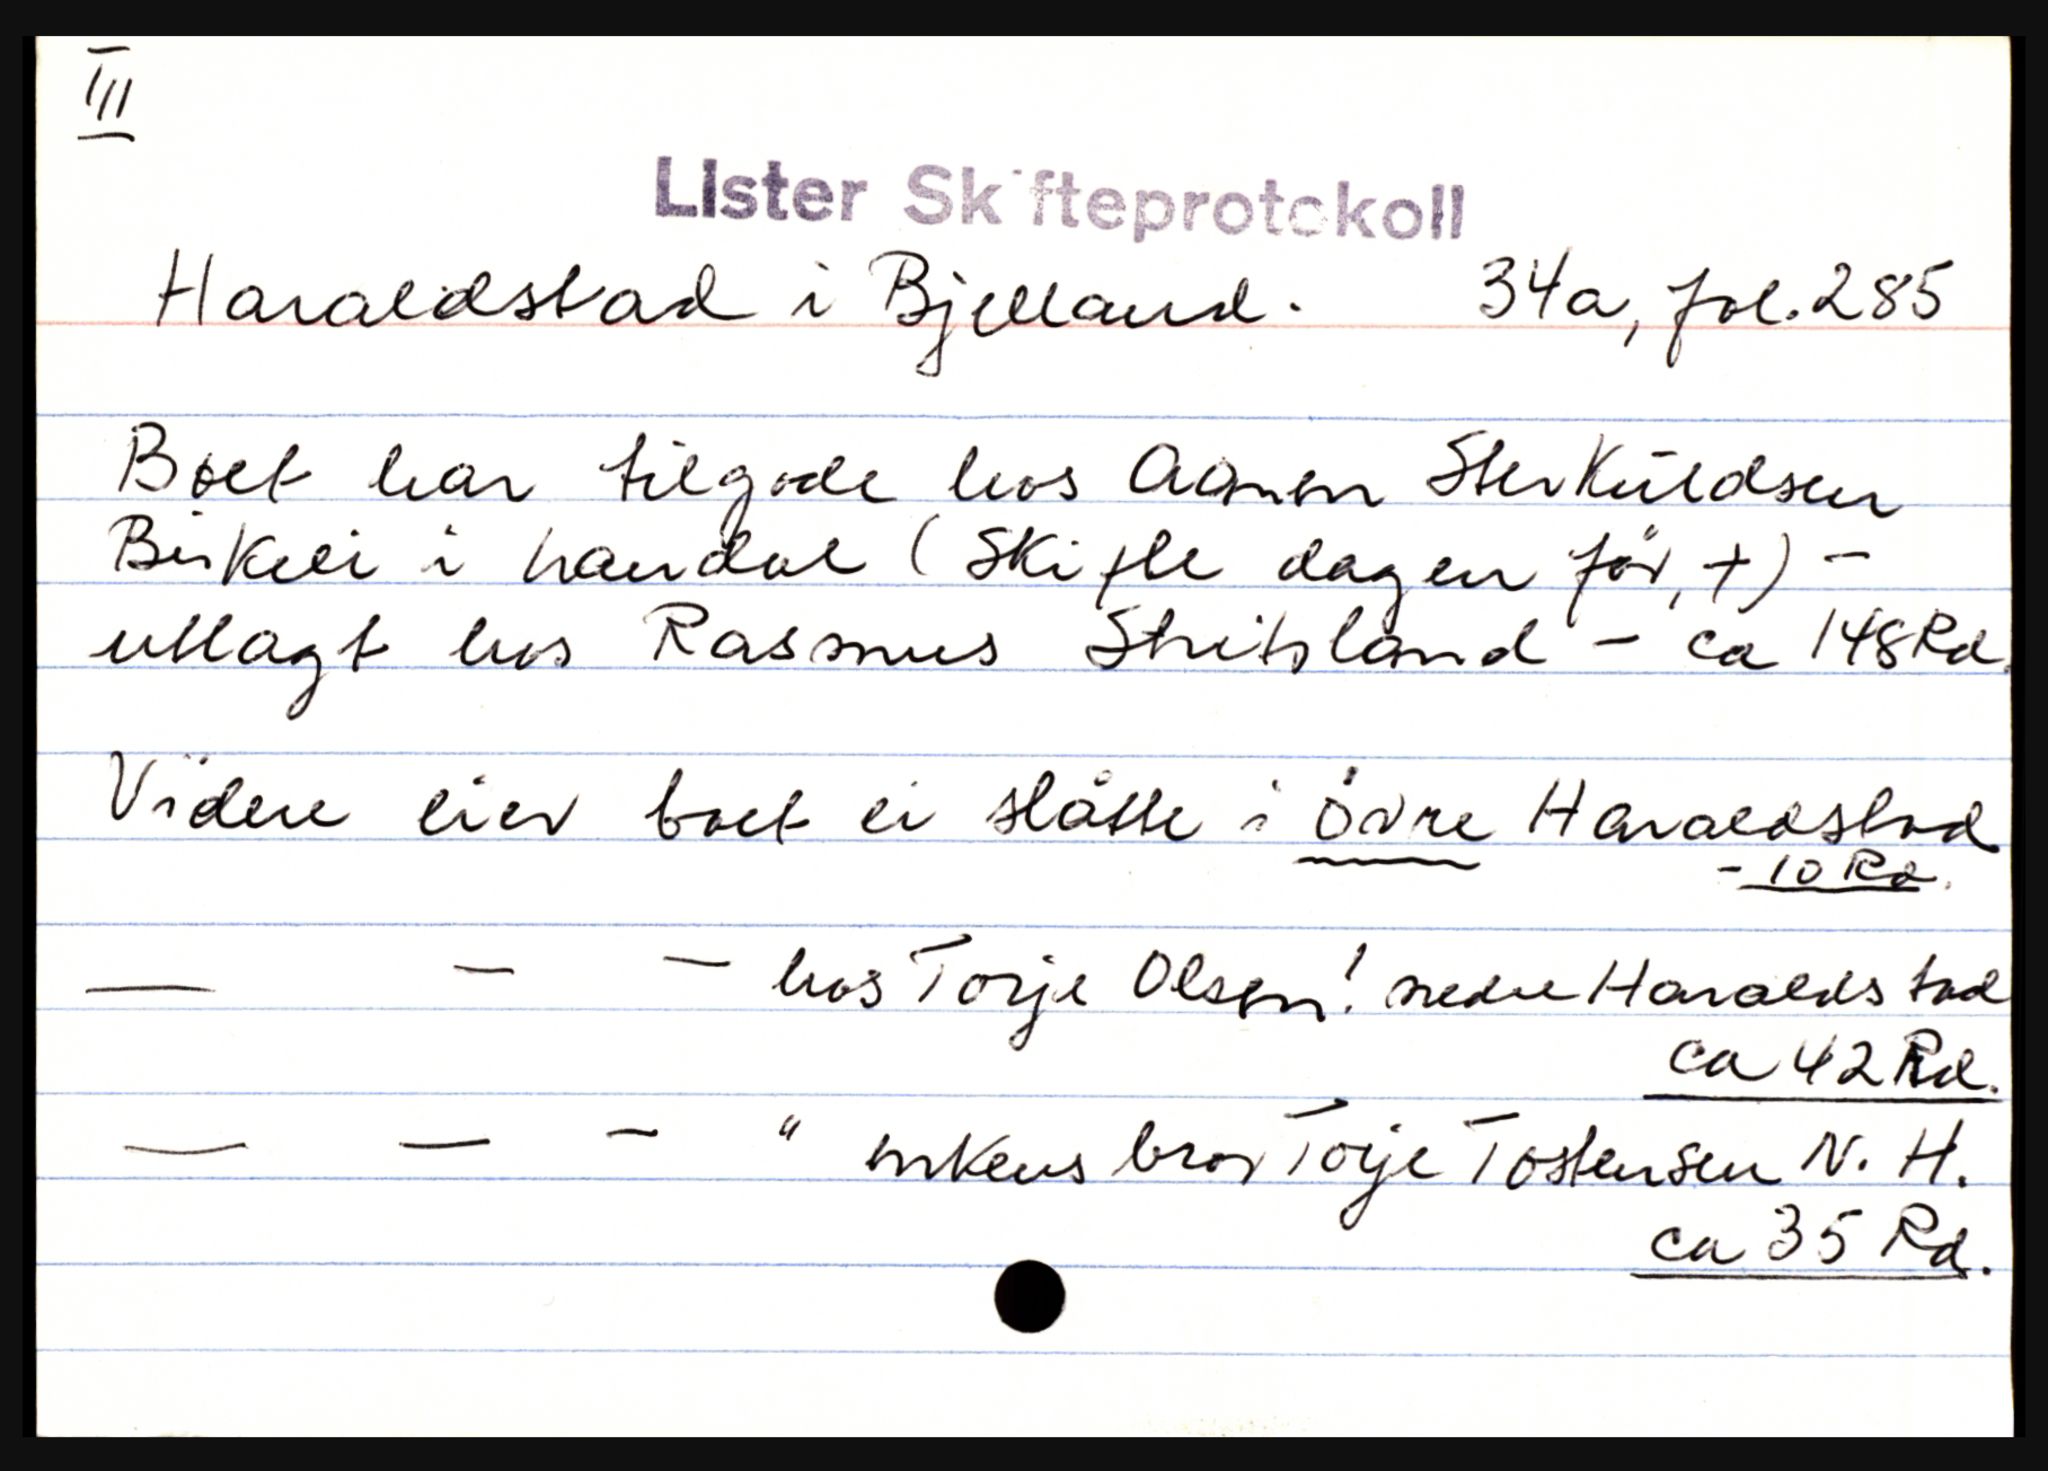 III
LIster Skifteprotokoll
Haraldstad i Bjelland. 34a, fol. 285
Boet har tilgode hos Aanen Sterkuldsen
Birkeli i Laudal (Skifte dagen før, +) –
utlagt hos Rasmus – ca 148 Rd.
Videre eier boet ei slåtte i Övre Haraldstad
– 10 Rd.
— – – hos Torje Olsen! nedre Haraldstad
ca 42 Rd.
— — – " enkens bror Torje Tostensen N. H.
ca 35 Rd.